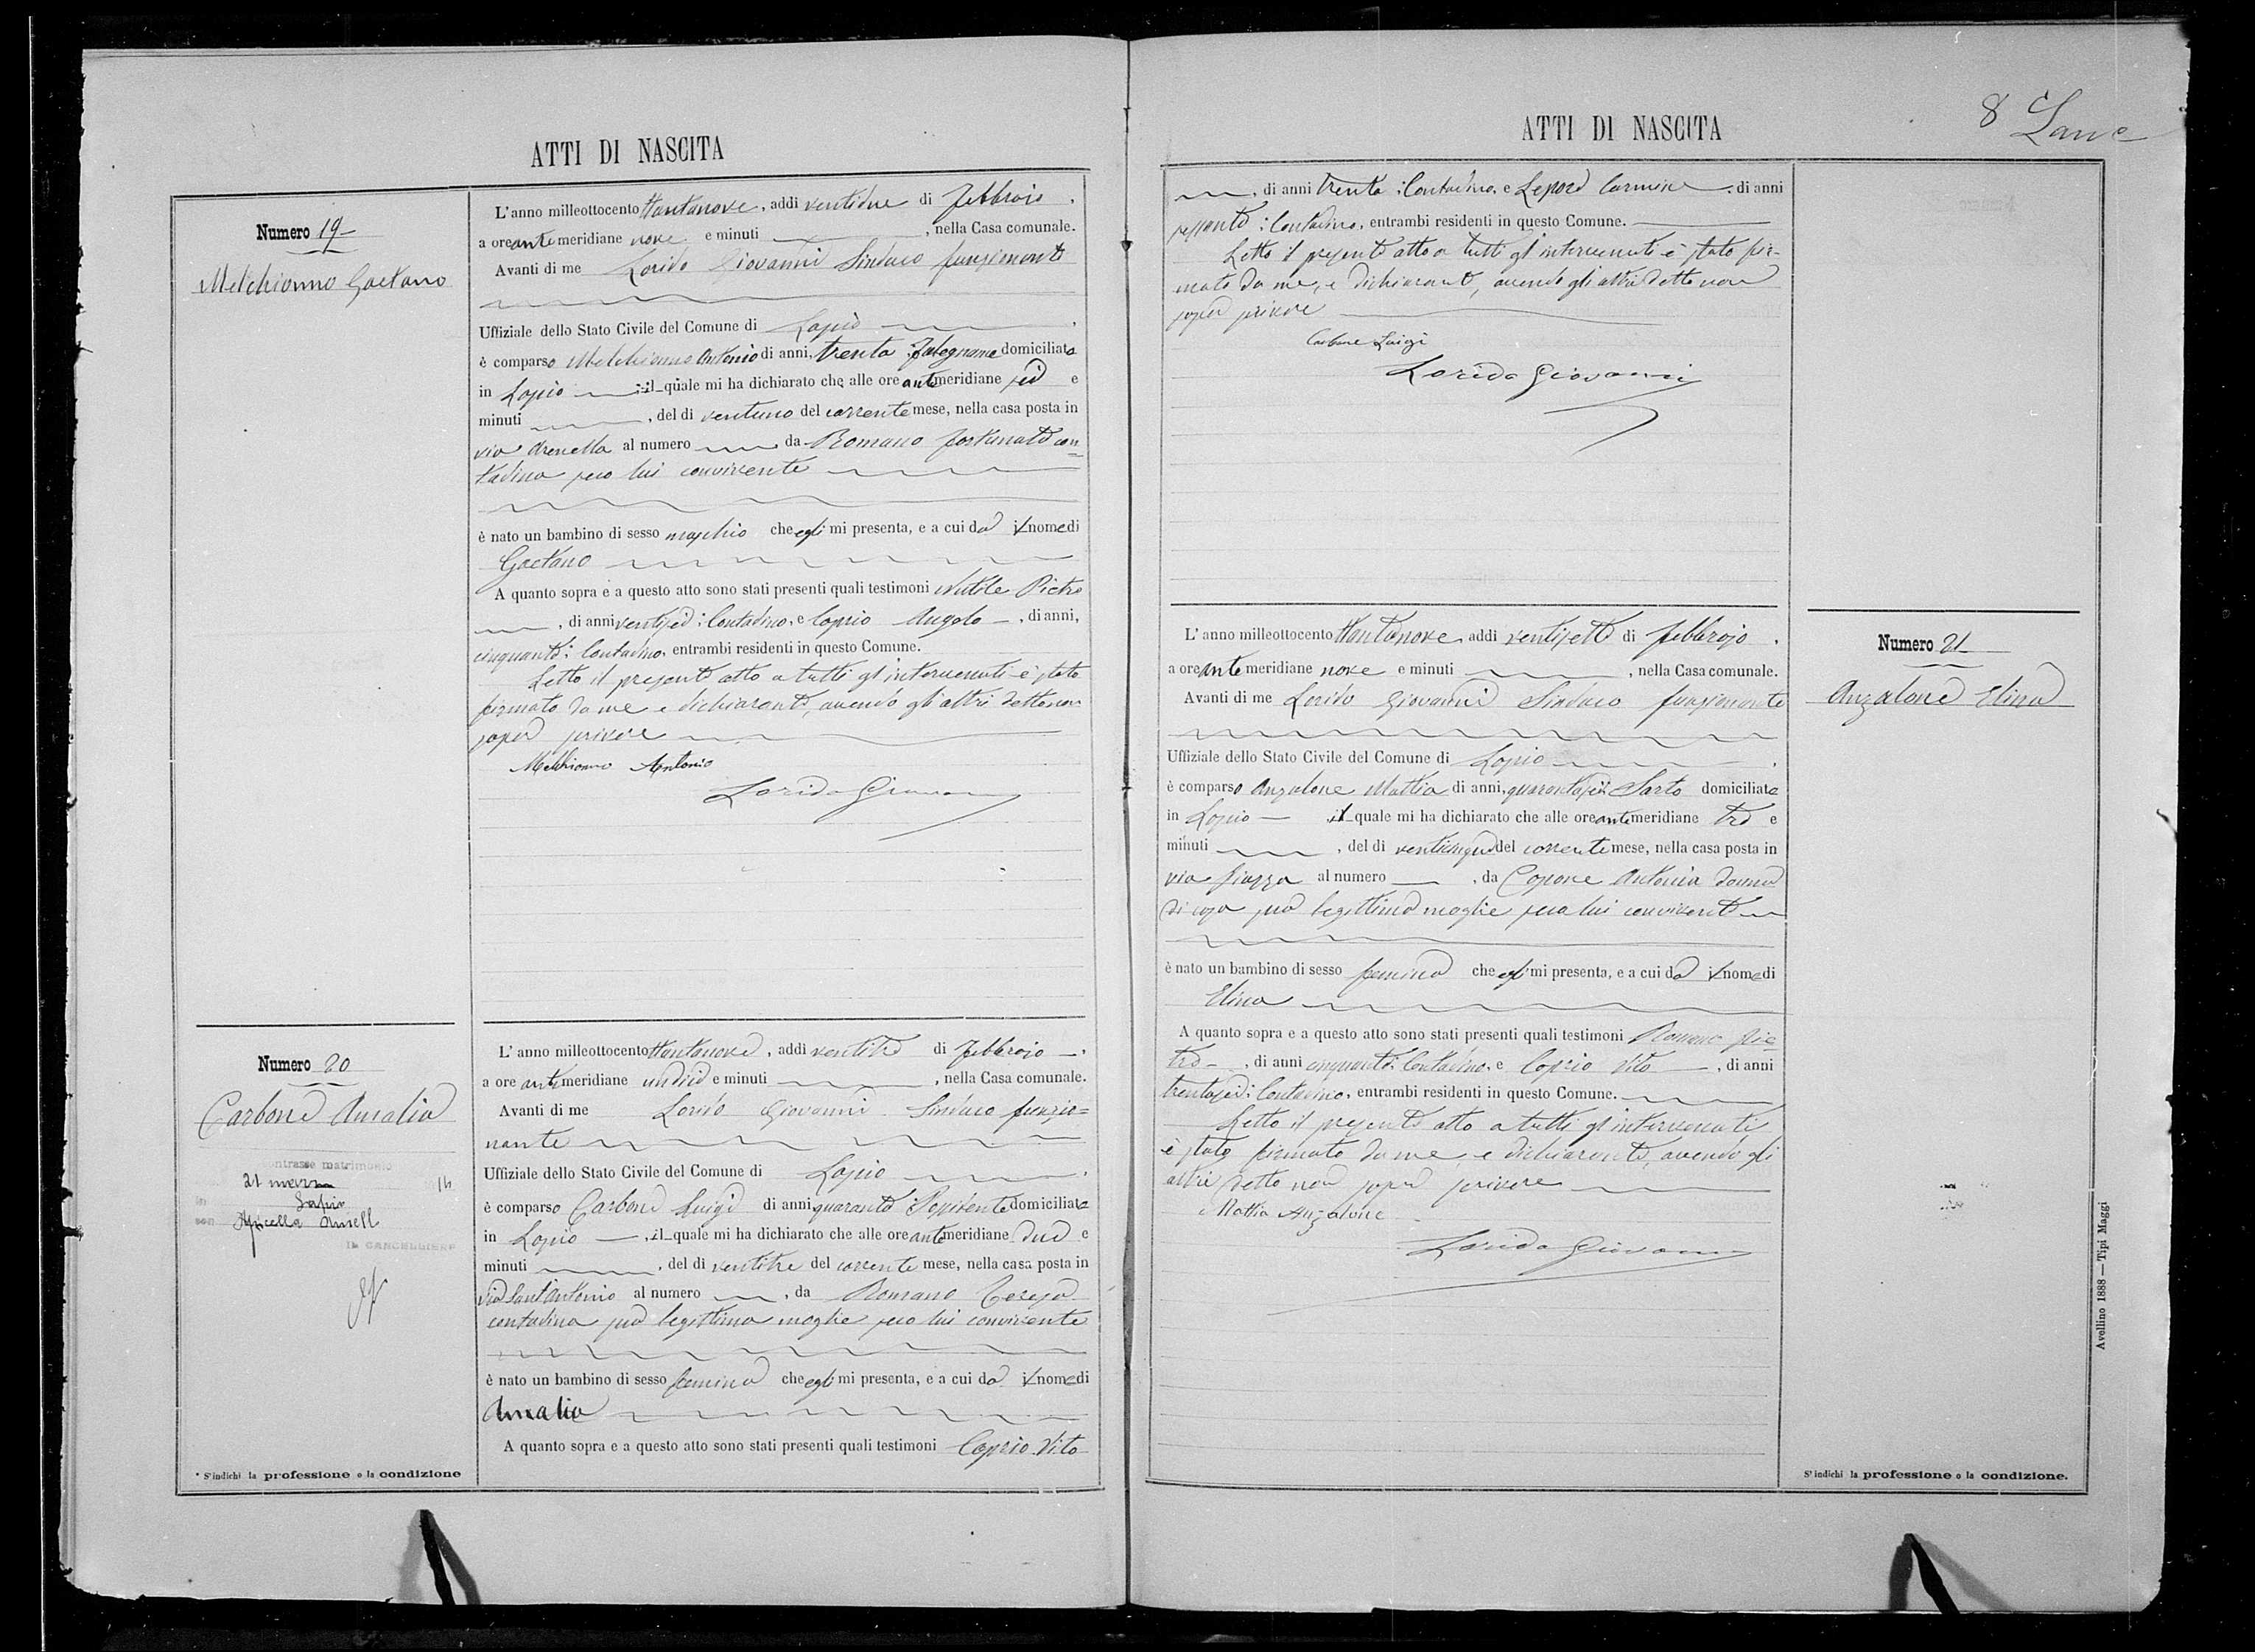 ATTI DI NASCITA
Numero 19
Melchionno Gaetano
L'anno milleottocento ottantanove, addi ventidue di Febbraio,
a ore antemeridiane nove e minuti , nella Casa comunale.
Avanti di me Lorido Giovanni Sindaco funzionante
Uffiziale dello Stato Civile del Comune di Lapio
è comparso Melchionno Antonio di anni, trenta, falegname domiciliato
in Lapio il quale mi ha dichiarato che alle ore antemeridiane sei e
minuti , del di ventuno del corrente mese, nella casa posta in
via Arenella al numero da Romano Fortunata con=
tadina seco lui convivente
è nato un bambino di sesso maschio che egli mi presenta, e a cui dà il nome di
Gaetano
A quanto sopra e a questo atto sono stati presenti quali testimoni Nutile Pietro
, di anni ventisei, Contadino, e Caprio Angelo , di anni,
cinquanta, Contadino, entrambi residenti in questo Comune.
Letto il presente atto a tutti gl'intervenuti è stato
firmato da me e dichiarante, avendo gli altri detto non
saper scrivere
Melchionno Antonio
Lorido Giovanni
Numero 20
Carbone Amalia
contrasse matrimonio
21 marzo
in Lapio
con Apicella
IL CANCELLIERE
L'anno milleottocento ottantanove, addi ventitre di Febbraio
a ore antimeridiane undici e minuti , nella Casa comunale.
Avanti di me Lorido Giovanni Sindaco funzio=
nante
Uffiziale dello Stato Civile del Comune di Lapio
è comparso Carbone Luigi di anni quaranta domiciliato
in Lapio , il quale mi ha dichiarato che alle ore antemeridiane due e
minuti , del di ventitre del corrente mese, nella casa posta in
via Sant'Antonio al numero , da Romano Teresa
contadina sua legittima moglie seco lui convivente
è nato un bambino di sesso femina che egli mi presenta, e a cui dà il nome di
Amalia
A quanto sopra e a questo atto sono stati presenti quali testimoni Caprio Vito
* S'indichi la professione o la condizione
ATTI DI NASCITA
8
, di anni trenta, Contadino, e Lepore Carmine , di anni
sessanta, Contadino, entrambi residenti in questo Comune.
Letto il presente atto a tutti gl'intervenuti è stato fir-
mato da me, e dichiarante, avendo gli altri detto non
saper scrivere
Carbone Luigi
Lorido Giovanni
L'anno milleottocento ottantanove, addi ventisette di Febbrajo,
a ore antemeridiane nove e minuti , nella Casa comunale.
Avanti di me Lorido Giovanni Sindaco funzionante
Uffiziale dello Stato Civile del Comune di Lapio
è comparso Anzalone Mattia di anni, quarantasei, Sarto domiciliato
in Lapio il quale mi ha dichiarato che alle ore antemeridiane tre e
minuti , del di venticinque del corrente mese, nella casa posta in
via Piazza al numero , da Capone Antonia donna
di casa sua legittima moglie seco lui convivente
è nato un bambino di sesso femina che egli mi presenta, e a cui dà il nome di
Elina
A quanto sopra e a questo atto sono stati presenti quali testimoni Romano Pie
tro , di anni cinquanta, Contadino, e Caprio Vito , di anni
trentasei, Contadino, entrambi residenti in questo Comune.
Letto il presente atto a tutti gl'intervenuti
è stato firmato da me, e dichiarante, avendo gli
altri detto non saper scrivere
Mattia Anzalone
Lorido Giovanni
Numero 21
Anzalone Elina
Avellino 1888 — Tipi Maggi
S'indichi la professione o la condizione.